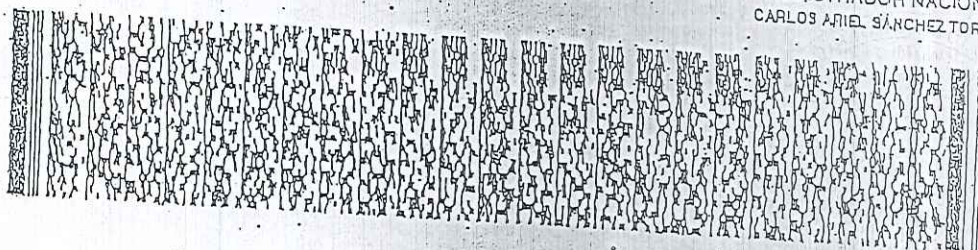 NACION
CARLOS ARIEL SÁNCHEZ TOR